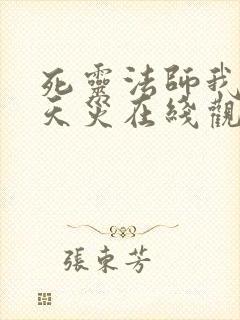 死靈法師我
天災在綫觀
張東芳